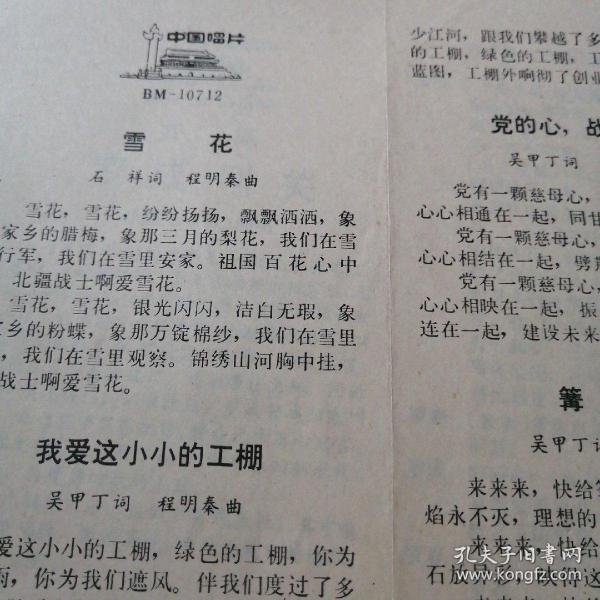 中国唱片
BM-10712
雪 花
石 祥词 程明秦曲
雪花，雪花，纷纷扬扬，飘飘洒洒，象
家乡的腊梅，象那三月的梨花，我们在雪
行军，我们在雪里安家。祖国百花心中
北疆战士啊爱雪花。
雪花，雪花，银光闪闪，洁白无瑕，象
乡的粉蝶，象那万锭棉纱，我们在雪里
，我们在雪里观察。锦绣山河胸中挂，
战士啊爱雪花。
我爱这小小的工棚
吴甲丁词 程明秦曲
爱这小小的工棚，绿色的工棚，你为
雨，你为我们遮风。伴我们度过了多
少江河，跟我们攀越了多
的工棚，绿色的工棚，工
蓝图，工棚外响彻了创业
党的心，战
吴甲丁词
党有一颗慈母心，
心心相通在一起，同甘
党有一颗慈母心，
心心相结在一起，劈
党有一颗慈母心，
心心相映在一起，振
连在一起，建设未来
篝
吴甲丁词
来来来，快给
焰永不灭，理想的
来来来，快给
石
孔夫子旧书网
www.kongfz.com